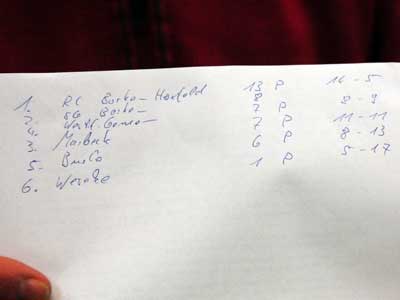 1. RC Borken-Hoxfeld 13 P - 5
2. SG Borken 8
4. Westf. Gemen 7 P 8 - 9
3. Marbeck 7 P 11 - 11
5. Burlo 6 P 8 - 13
6. Weseke 1 P 5 - 17